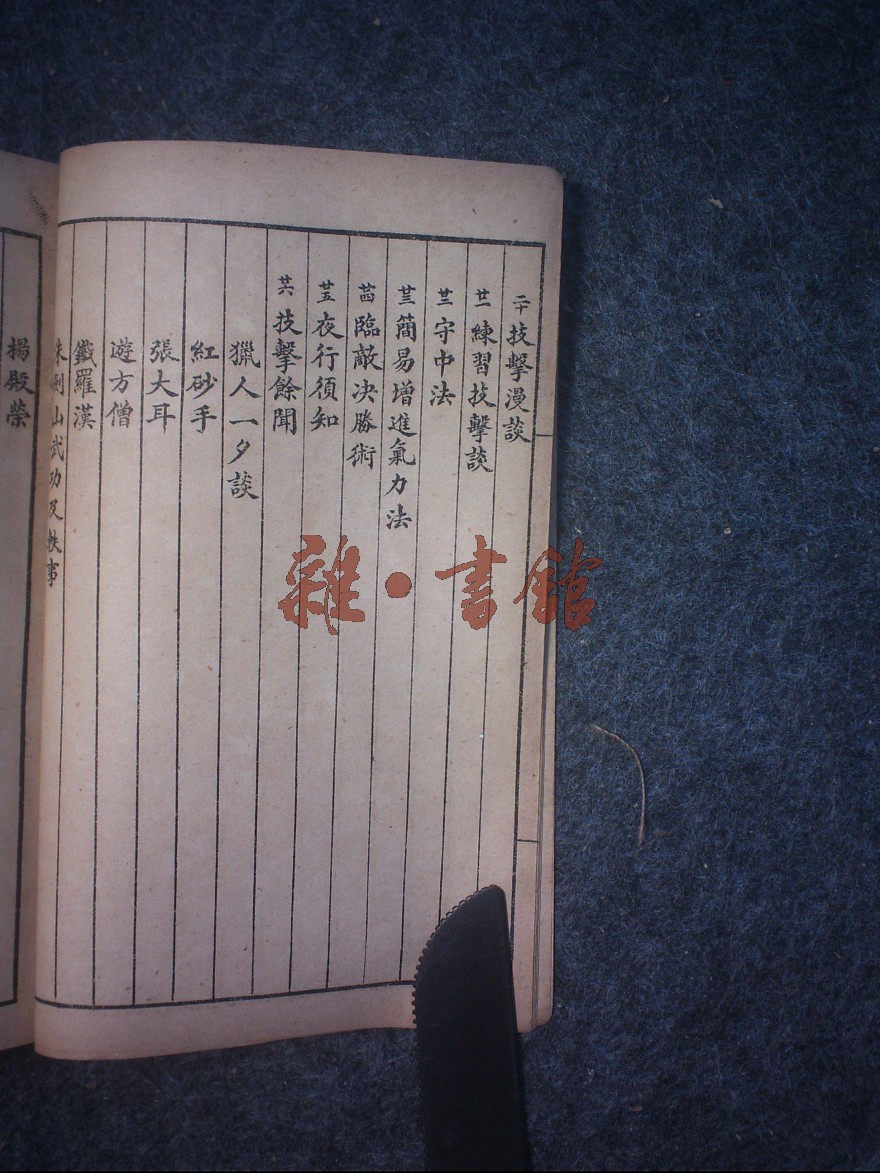 二十 技擊漫談
廿一 練習技擊談
廿二 守中法
廿三 簡易增進氣力法
廿四 臨敵決勝術
廿五 夜行須知
廿六 技擊餘聞
獵人一夕談
紅砂手
張大耳
遊方僧
鐵羅漢
山武功及軼事
楊殿榮
雜·書館